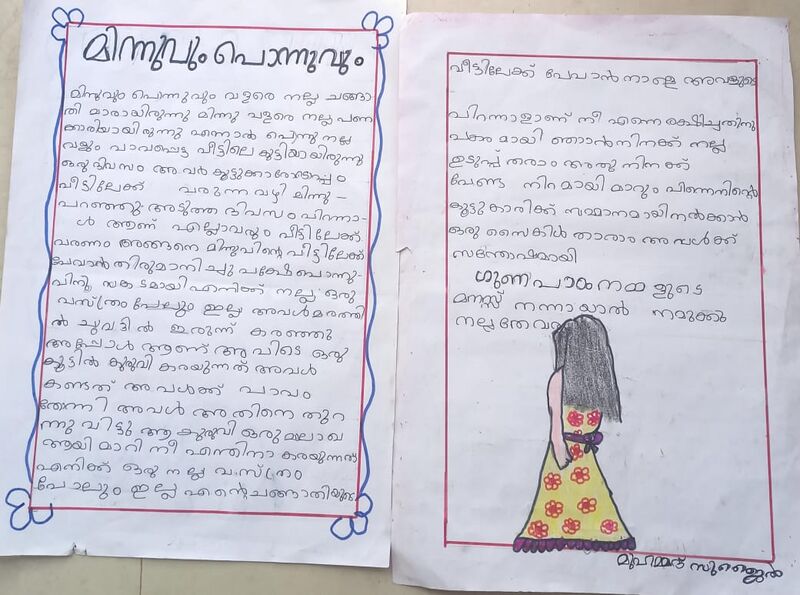 മിന്നുവും പൊന്നുവും
മിന്നുവും പൊന്നുവും വളരെ നല്ല ചങ്ങാ
തി മാരായിരുന്നു മിന്നു വളരെ നല്ല പണ
ക്കാരിയായിരുന്നു എന്നാൽ പൊന്നു നല്ല
വളും പാവപ്പെട്ട വീട്ടിലെ കുട്ടിയായിരുന്നു
ഒരു ദിവസം അവർ കൂട്ടുക്കാരോടൊപ്പം
വീട്ടിലേക്ക് വരുന്ന വഴി മിന്നു -
പറഞ്ഞു അടുത്ത ദിവസം പിറന്നാ-
ൾ ആണ് എല്ലാവരും വീട്ടിലേക്ക്
വരണം അങ്ങനെ മിന്നുവിന്റെ വീട്ടിലേക്ക്
പേവാൻ തിരുമാനിച്ചു പക്ഷേ പൊന്നു-
വിനു സങ്കടമായി എനിക്ക് നല്ല ഒരു
വസ്ത്രം പ്പേലും ഇല്ല അവൾ മരത്തി
ൽ ചുവട്ടിൽ ഇരുന്ന് കരഞ്ഞു
അപ്പോൾ ആണ് അവിടെ ഒരു
കൂട്ടിൽ കുരുവി കരയുന്നത് അവൾ
കണ്ടത് അവൾക്ക് പാവം
തേന്നി അവൾ അതിനെ തുറ
ന്നു വിട്ടു ആ കുരുവി ഒരു മലാഖ
ആയി മാറി നീ എന്തിനാ കരയുന്നത്
എനിക്ക് ഒരു നല്ല വസ്ത്രം
പോലും ഇല്ല എന്റെ ചങ്ങാതിയുടെ
വീട്ടിലേക്ക് പേവാൻ നാളെ അവളുടെ
പിറന്നാളാണ് നീ എന്നെ രക്ഷിച്ചതിനു
പകരമായി ഞാൻ നിനക്ക് നല്ല
ഇടുപ്പ് തരാം അതു നിനക്ക്
പേണ്ട നിറമായി മാറും പിന്നെ നിന്റെ
കൂട്ടുകാരിക്ക് സമ്മാനമായി നൽക്കാൻ
ഒരു സൈക്കിൾ താരാം അവൾക്ക്
സന്തോഷമായി
ഗുണപാഠം നമ്മളുടെ
മനസ്സ് നന്നായാൽ നമുക്കു
നല്ലതേ വരു
മുഹമ്മദ് സുജൈൽ